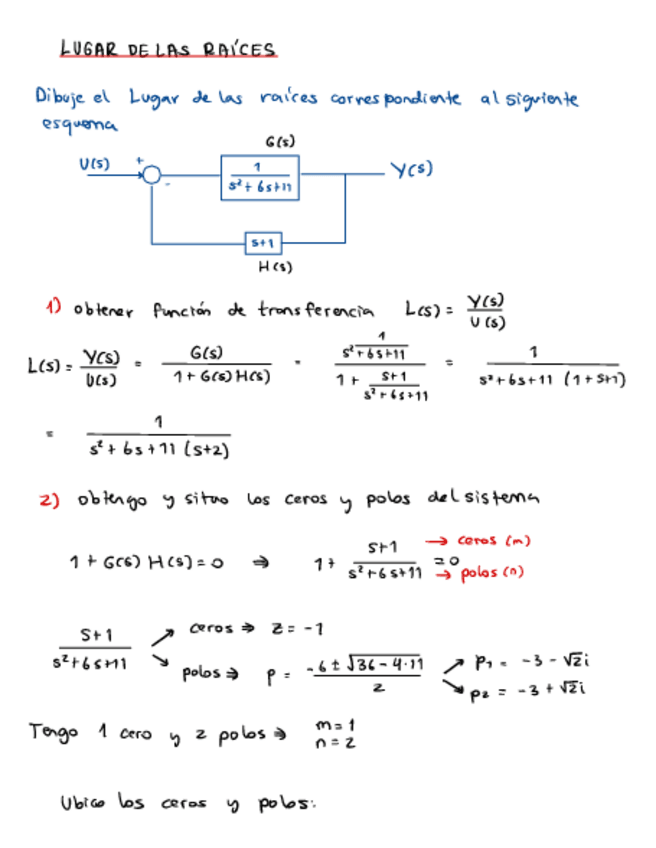 LUGAR DE LAS RAÍCES
Dibuje el Lugar de las raíces correspondiente al siguiente
esquema
G(s)
U(s) + 1 / s² + 6s+11 Y(s)
-
s+1
H(s)
1) obtener función de transferencia L(s) = Y(s) / U(s)
L(s) = Y(s) / U(s) = G(s) / 1 + G(s) H(s) = 1 / s² + 6s+11 / 1 + s+1 / s² + 6s+11 = 1 / s² + 6s+11 (1+s+1)
= 1 / s² + 6s+11 (s+2)
2) obtengo y sitúo los ceros y polos del sistema
1 + G(s) H(s) = 0 ⇒ 1+ s+1 / s²+6s+11 = 0 → ceros (m) → polos (n)
s+1 / s²+6s+11 ↗ ceros ⇒ z = -1
↘ polos ⇒ p = -6 ± √36-4·11 / 2 ↗ p1 = -3 - √2i
↘ p2 = -3 + √2i
Tengo 1 cero y 2 polos ⇒ m=1
n=2
Ubico los ceros y polos: